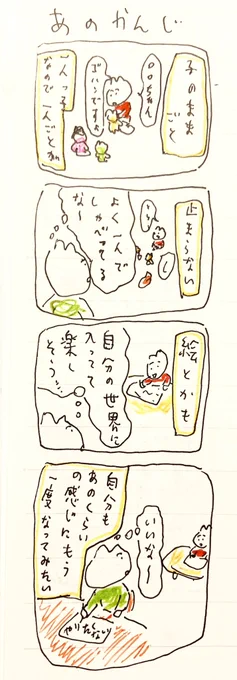 あのかんじ
子のまま
ごと
〇〇ちゃん
ゴハンですよ
一人っ子
なので一人ごとが
止まらない
よく一人で
しゃべってる
な〜
絵とかも
自分の世界に
入ってて
楽し
そう…
いいな〜
自分も
あのくらい
の感じにもう
一度なってみたい
やりたくない